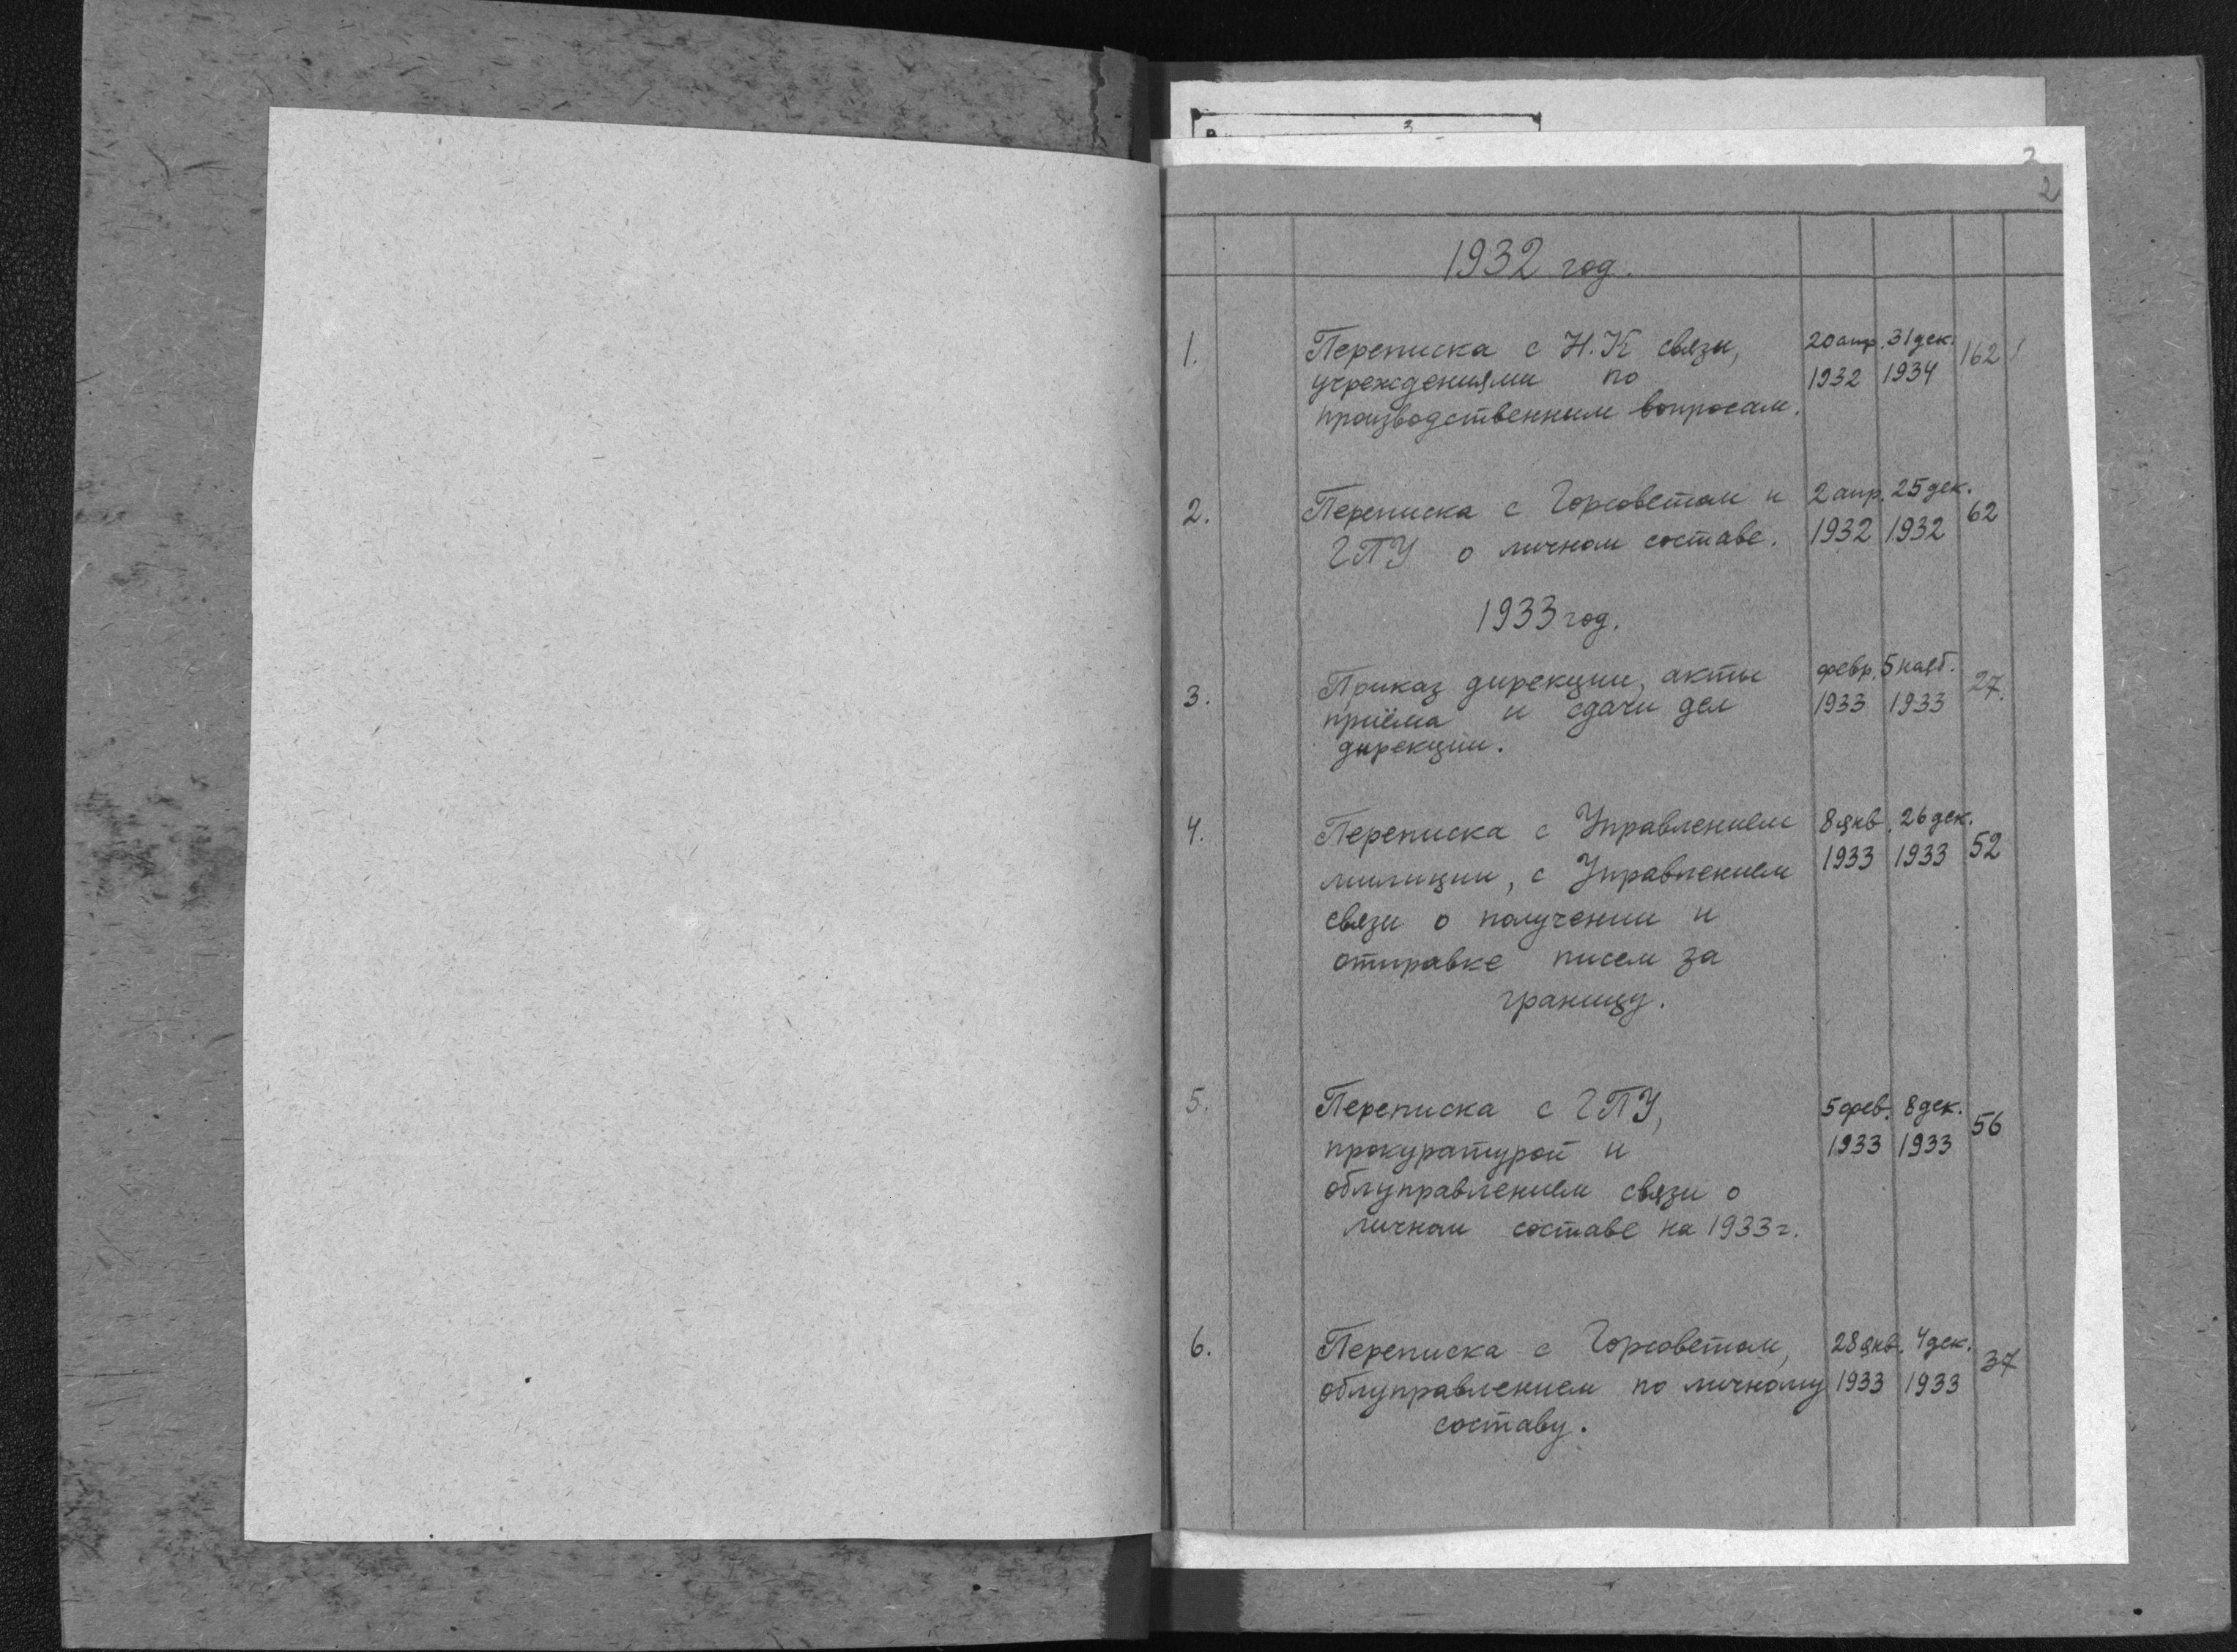 3
2
2
1932 год.
1. Переписка с Н.К связи, 20 апр. 31 дек. 162
учреждениями по 1932 1934
производственным вопросам.
2. Переписка с Горсоветом и 2 апр. 25 дек. 62
ГПУ о личном составе. 1932 1932
1933 год.
3. Приказ дирекции, акты февр. 5 нояб. 27.
приёма и сдачи дел 1933 1933
дирекции.
4. Переписка с Управлением 8 янв. 26 дек. 52
милиции, с Управлением 1933 1933
связи о получении и
отправке писем за
границу.
5. Переписка с ГПУ, 5 фев. 8 дек. 56
прокуратурой и 1933 1933
облуправлением связи о
личном составе на 1933 г.
6. Переписка с Горсоветом, 28 янв. 4 дек. 37
облуправлением по личному 1933 1933
составу.